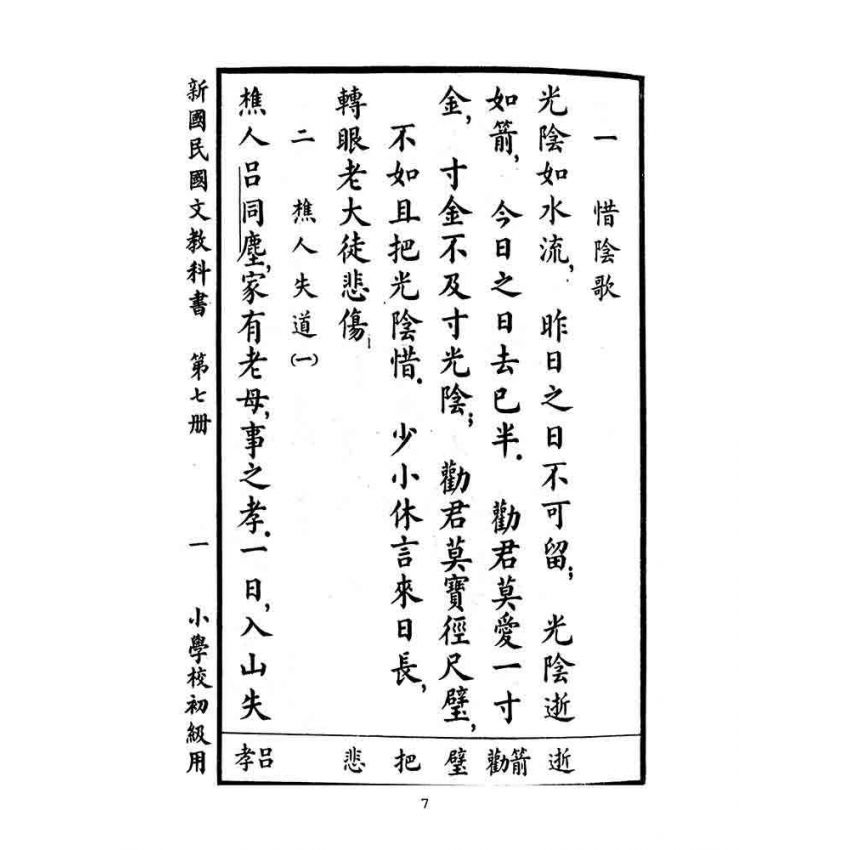 一　惜陰歌
光陰如水流，昨日之日不可留；光陰逝
如箭，今日之日去已半．勸君莫愛一寸
金，寸金不及寸光陰；勸君莫寶徑尺璧，
不如且把光陰惜．少小休言來日長，
轉眼老大徒悲傷．
二　樵人失道(一)
樵人呂同塵，家有老母，事之孝．一日，入山失
逝
箭勸
璧
把
悲
呂孝
新國民國文教科書　第七册　一　小學校初級用
7